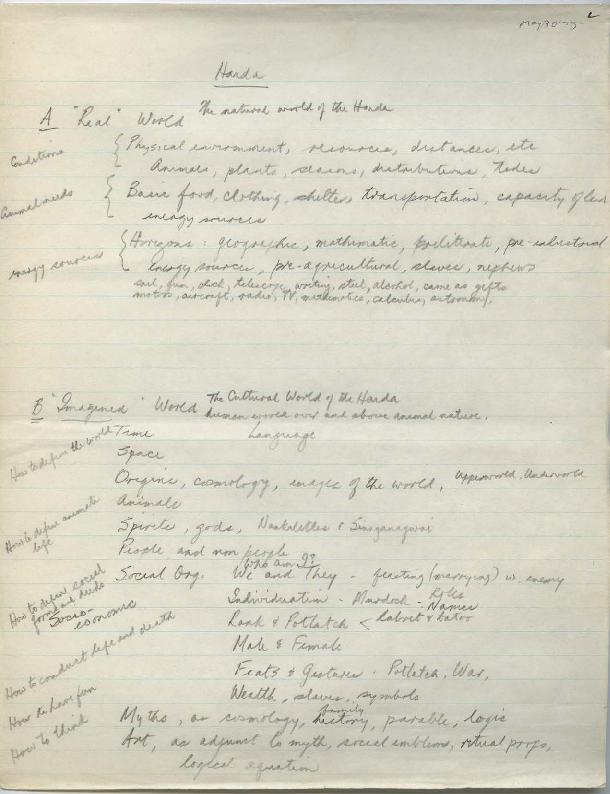 May 30-75 2
Haida
A "Real" World The natural world of the Haida
Conditions
Physical environment, resources, distances, etc
Animals, plants, seasons, distributions, tides
Animal needs
Basic food, clothing, shelter, transportation, capacity of
energy sources
energy sources
Horizons: geographic, mathematic, preliterate, pre-industrial
Energy sources, pre-agricultural, slaves, nephews
sail, gun, clock, telescope, writing, steel, alcohol, came as gifts
motors, aircraft, radio, TV, mathematics, calculus, astronomy.
B "Imagined" World The Cultural World of the Haida
human world over and above animal nature.
How to define the world
Time Language
Space
Origins, cosmology, images of the world, Upperworld, Underworld
How to define animate life
Animals
Spirits, gods,
People and non people
Who am I?
How to define social
forms and deeds
Socio-economic
Social Org. We and They - feasting (marrying) w. enemy
Individuation - Murdoch - Roles
Names
Rank & Potlatch < Labret & tatoo
Male & Female
How to conduct life and death
Feats & Gestures. Potlatch, War,
Wealth, slaves, symbols
How to have fun
Myths, as cosmology, family history, parable, logic
How to think
Art, as adjunct to myth, social emblem, ritual props,
logical equation